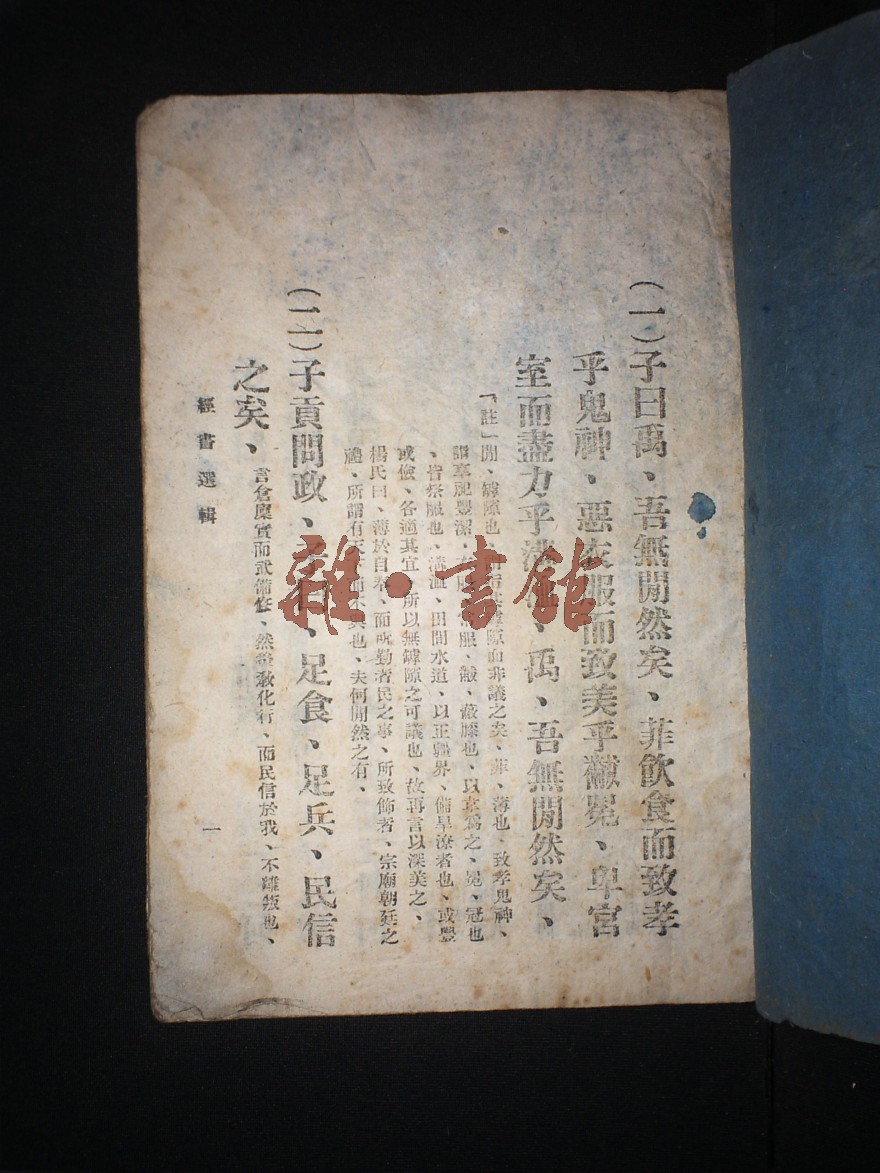 (一)子曰禹、吾無閒然矣、菲飲食而致孝
乎鬼神、惡衣服而致美乎黻冕、卑宮
室而盡力乎溝、禹、吾無閒然矣、
「註」閒、罅隙也、罅隙而非議之矣、菲、薄也、致孝鬼神、
謂享祀豐潔、衣服、常服、黻、蔽膝也、以韋爲之、冕、冠也
、皆祭服也、溝洫、田間水道、以正疆界、備旱潦者也、或豐
或儉、各適其宜、所以無罅隙之可議也、故再言以深美之、
楊氏曰、薄於自奉、而所勤者民之事、所致飾者、宗廟朝廷之
禮、所謂有天而不與也、夫何閒然之有、
(二)子貢問政、子、足食、足兵、民信
之矣、言倉廩實而武備修、然後敎化行、而民信於我、不離叛也、
經書選輯
一
雜·書館